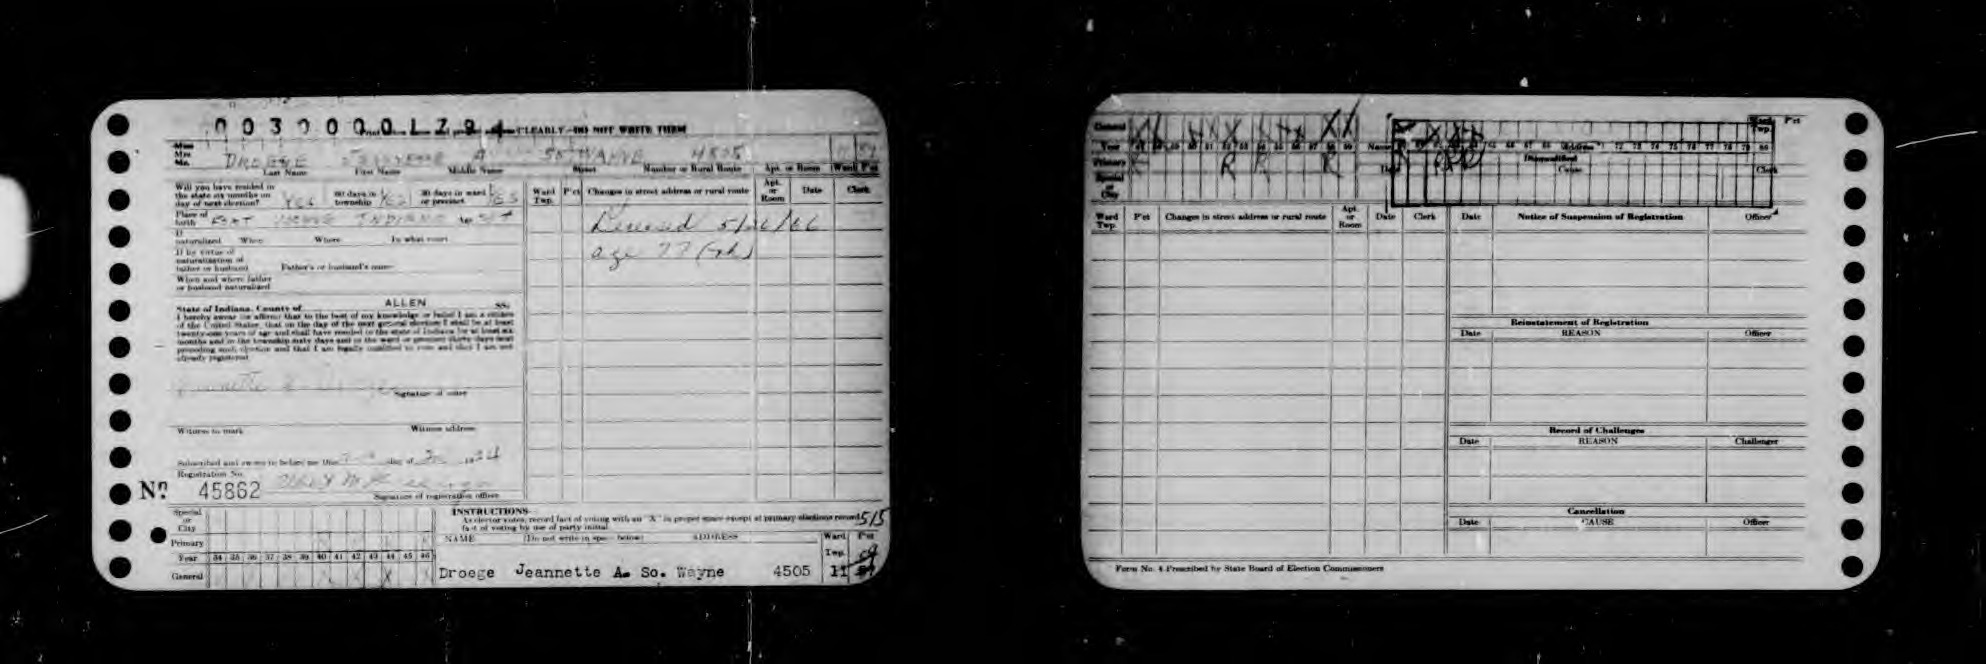 00300001794 CLEARLY—DO NOT WRITE THEM
Miss
Mrs.
Mr. DROEGE JEANNETTE A SO WAYNE 4505 11 57
Last Name First Name Middle Name Street Number or Rural Route Apt. or Room Ward P'ct
Will you have resided in the state six months on day of next election? YES 60 days in township YES 30 days in ward or precinct YES
Ward Twp. P'ct Changes in street address or rural route Apt. or Room Date Clerk
Place of birth FORT WAYNE INDIANA
Deceased 5/26/66
age 77
If naturalized When Where In what court
If by virtue of naturalization of father or husband Father's or husband's name
When and where father or husband naturalized
State of Indiana, County of ALLEN SS:
I hereby swear (or affirm) that to the best of my knowledge or belief I am a citizen
of the United States, that on the day of the next general election I shall be at least
twenty-one years of age and shall have resided in the state of Indiana for at least six
months and in the township sixty days and in the ward or precinct thirty days next
preceding such election and that I am legally qualified to vote and that I am not
already registered.
Signature of voter
Witness to mark Witness address
Subscribed and sworn to before me this day of
Registration No.
No 45862
Signature of registration officer
Special or City
Primary
Year 34 35 36 37 38 39 40 41 42 43 44 45 46
General X
INSTRUCTIONS
As elector votes, record fact of voting with an "X" in proper space except at primary elections record
fact of voting by use of party initial.
515
NAME (Do not write in space below) ADDRESS Ward Twp. P'ct
Droege Jeannette A. So. Wayne 4505 11 57
General
Year
Primary R R R R
Special or City
Name Address Ward Twp. P'ct
72 73 74 75 76 77 78 79 80
Disqualified
Date Cause Clerk
Ward Twp. P'ct Changes in street address or rural route Apt. or Room Date Clerk
Date Notice of Suspension of Registration Officer
Reinstatement of Registration
Date REASON Officer
Record of Challenges
Date REASON Challenger
Cancellation
Date CAUSE Officer
Form No. 4 Prescribed by State Board of Election Commissioners